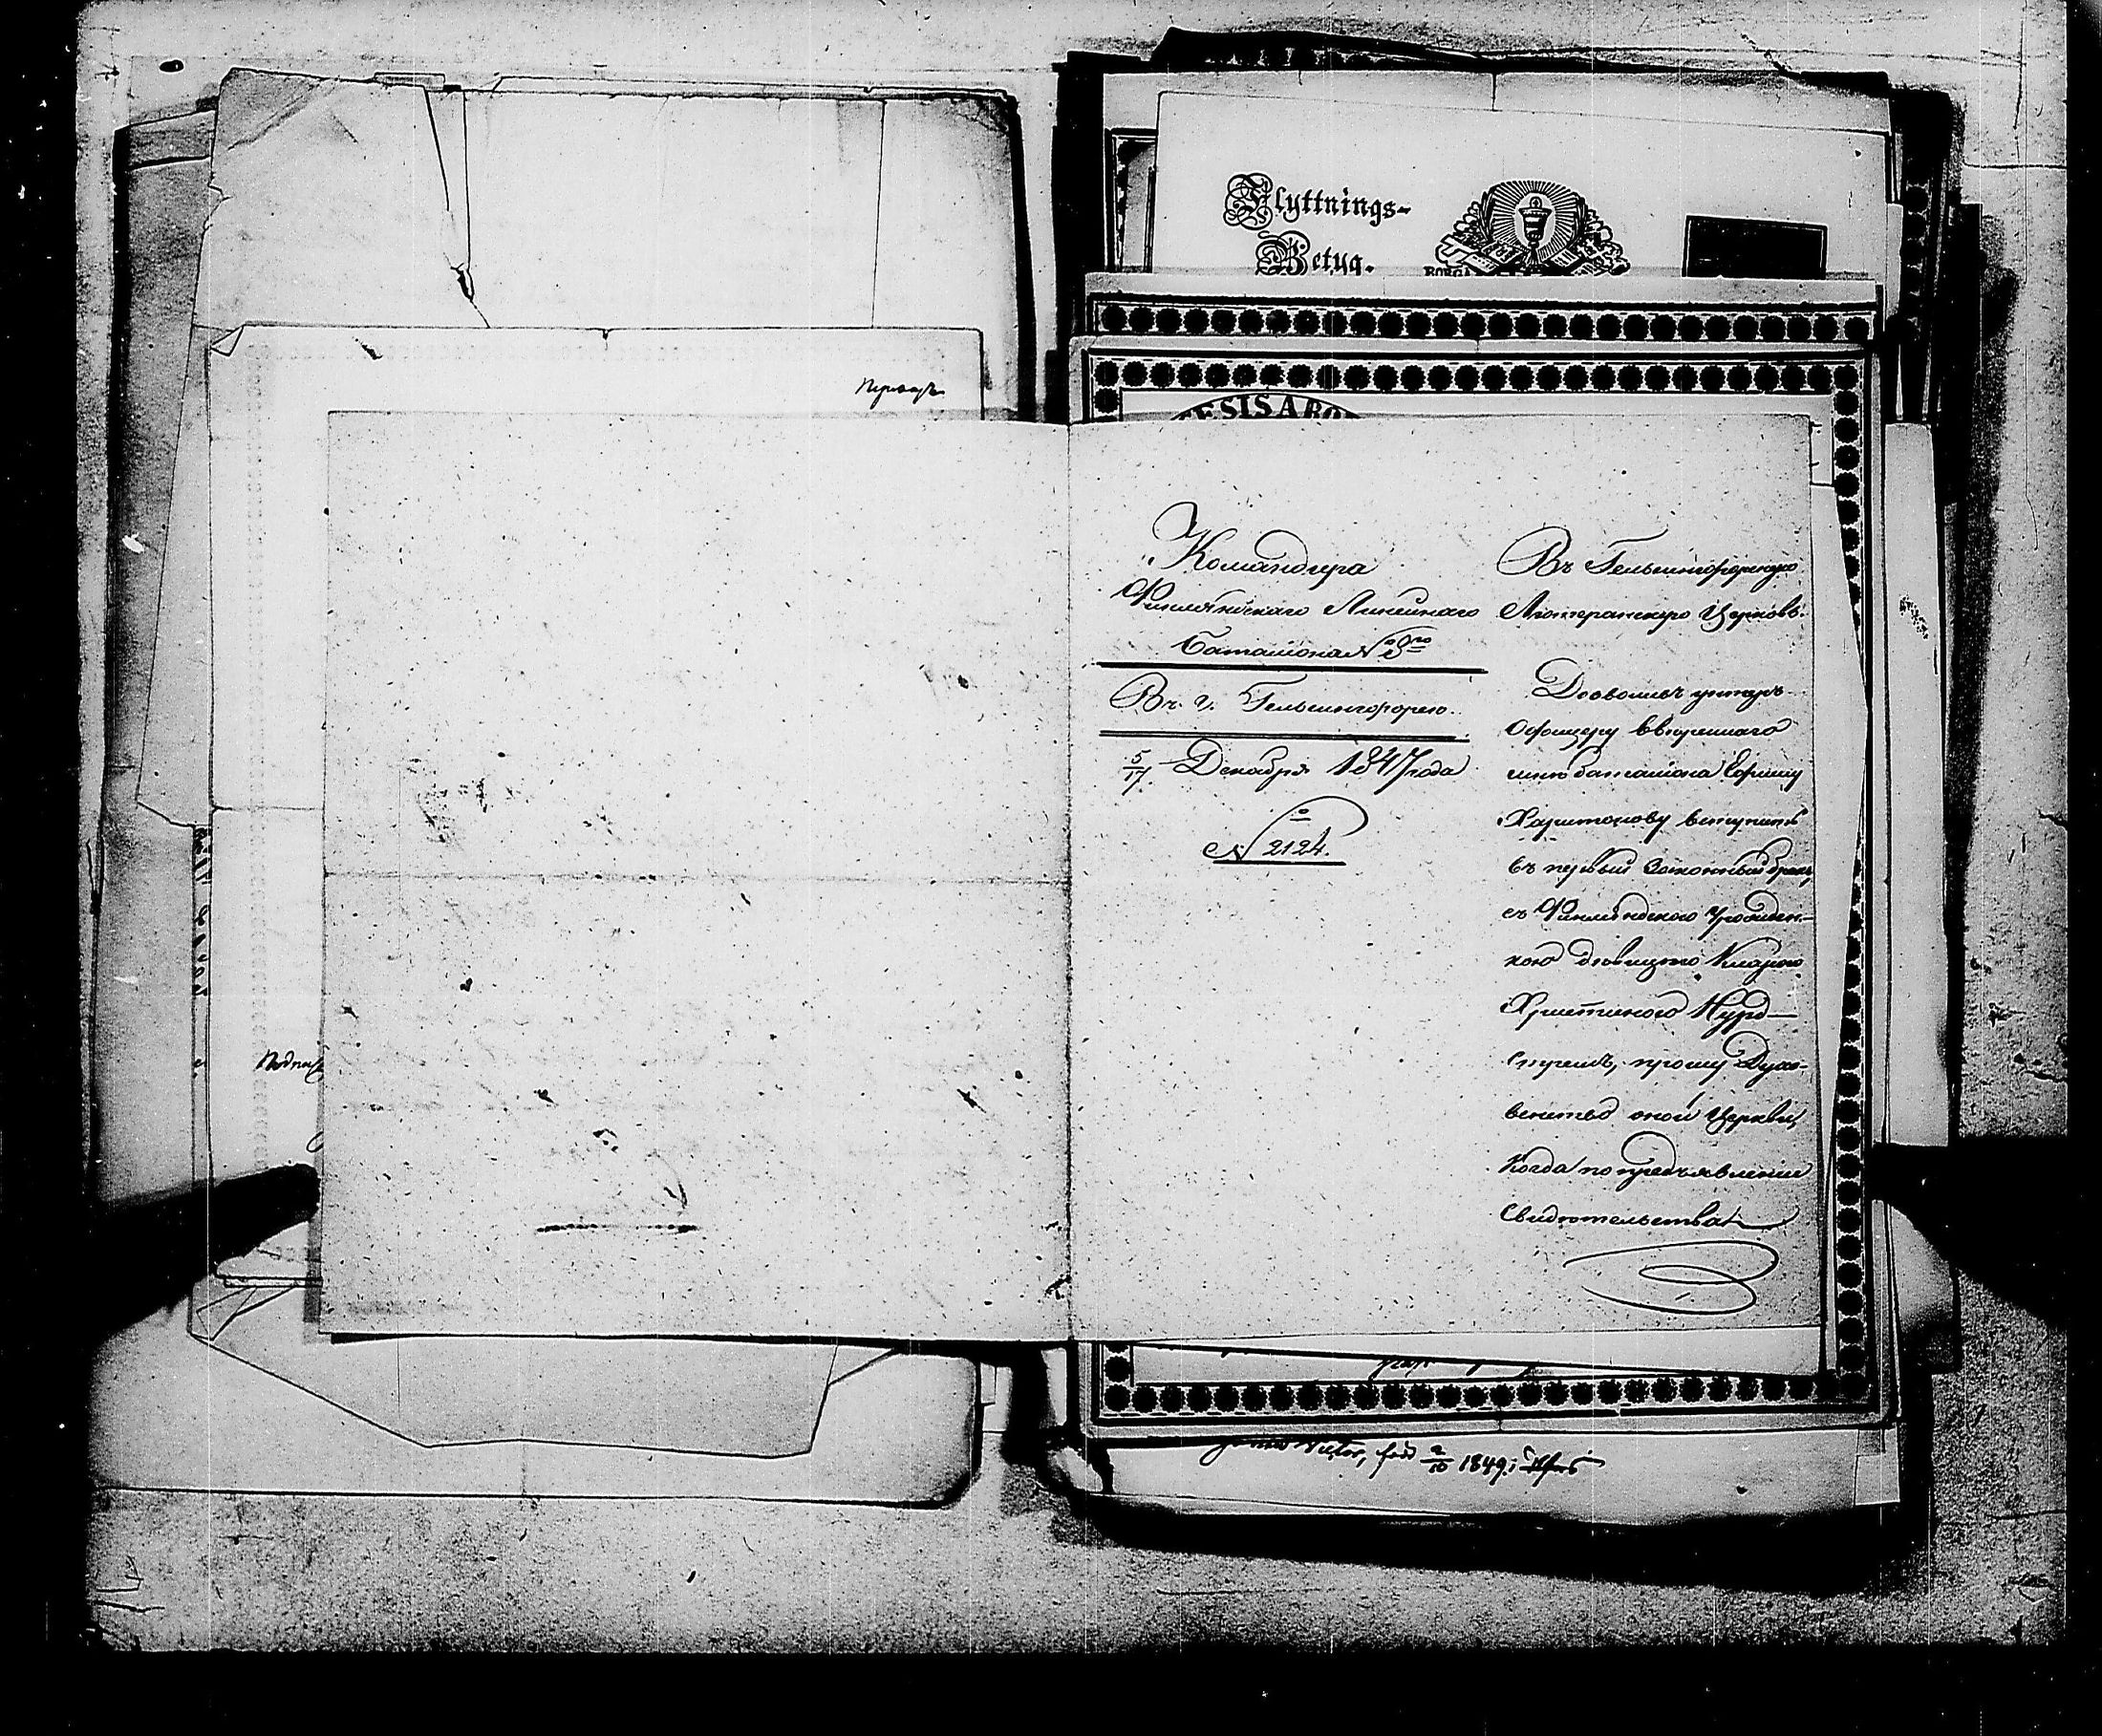 Flyttnings-
Betyg.
BORGÅ
Переводъ
Командира
Финляндскаго Линейнаго
Баталіона № 3го
Въ г. Гельсингфорсѣ.
5/17 Декабря 1847 года
№ 2124.
Въ Гельсингфорскую
Лютеранскую Церковь.
Дозволивъ унтеръ-
Офицеру ввѣреннаго
мнѣ баталіона Ефиму
Харитонову вступить
въ первый Законный бракъ,
съ Финляндскою Урожден-
кою дѣвицею Кларою
Христиною Нурд-
стремъ, прошу Духо-
венство оной Церкви,
когда по предъявленіи
Свидѣтельства
Подпис
född 2/10 1849 i